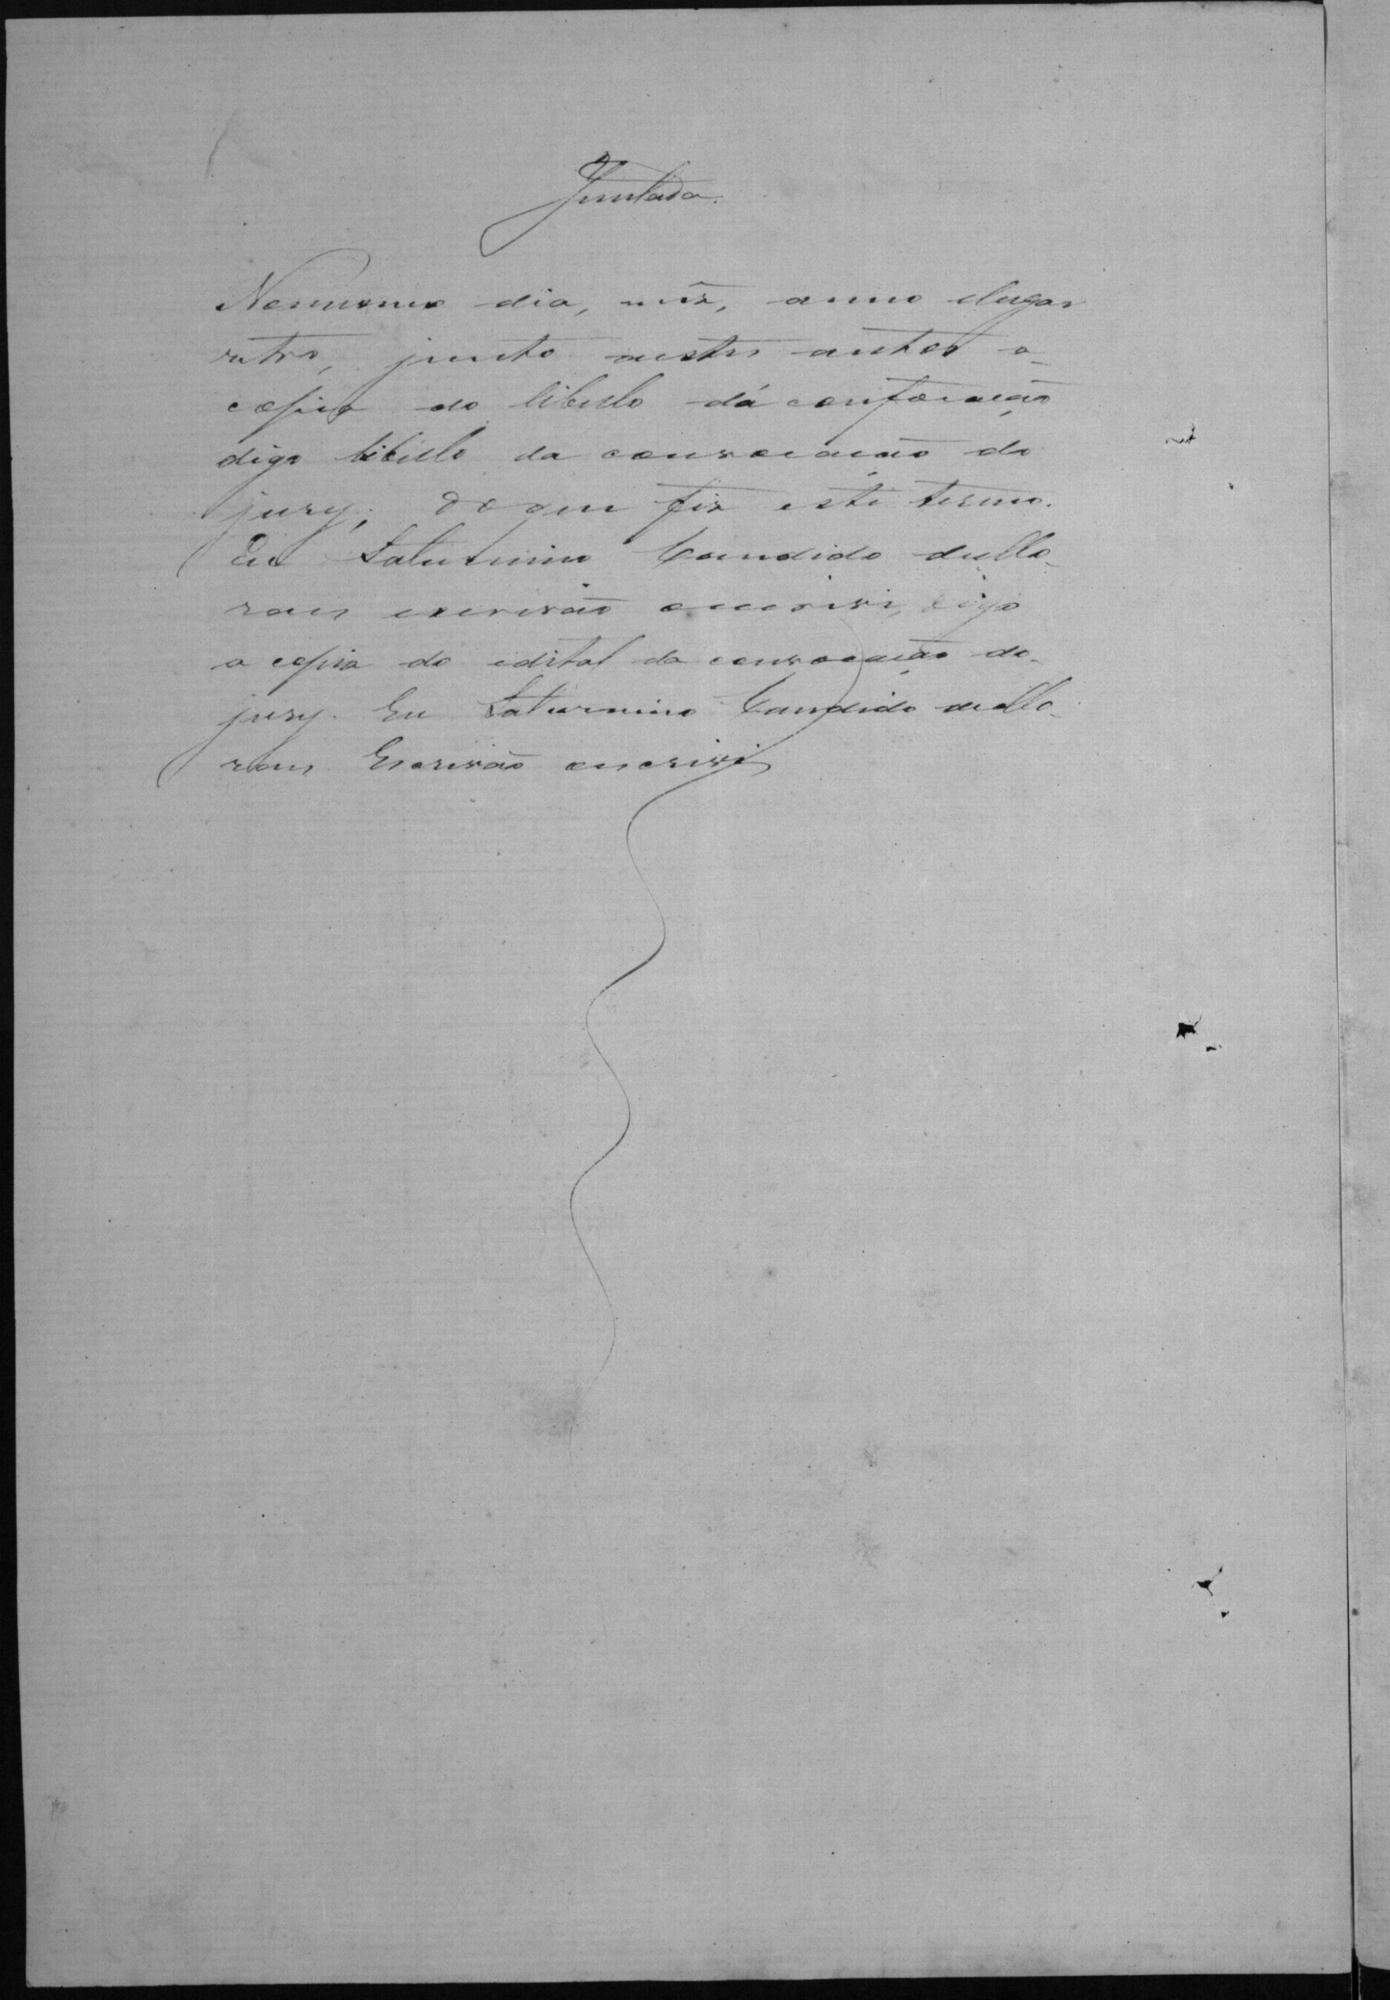 Juntada.
Nomesmo dia, mêz, anno elugar
retro, junto aestes autos a
copia do libello dá confocação
digo libello da convocação do
jury; do que fiz este termo.
Eu Saturnino Candido deMo-
raes escrivão escrivi, digo
a copia do edital da convocação do
jury. Eu Saturnino Candido deMo-
raes Escrivão escrivi